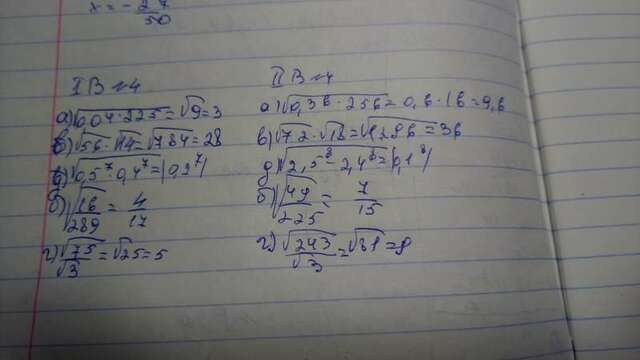 x = -27/50
I В №4
а) √0,04·225 = √9 = 3
в) √56·√14 = √784 = 28
√0,5⁷ 0,4⁷ = |0,2⁷|
б) √16/289 = 4/17
г) √75/√3 = √25 = 5
II В №4
а) √0,36·256 = 0,6·16 = 9,6
в) √72·√18 = √1296 = 36
д) √2,5⁸ - 2,4⁸ = |0,1⁸|
б) √49/225 = 7/15
г) √243/√3 = √81 = 9